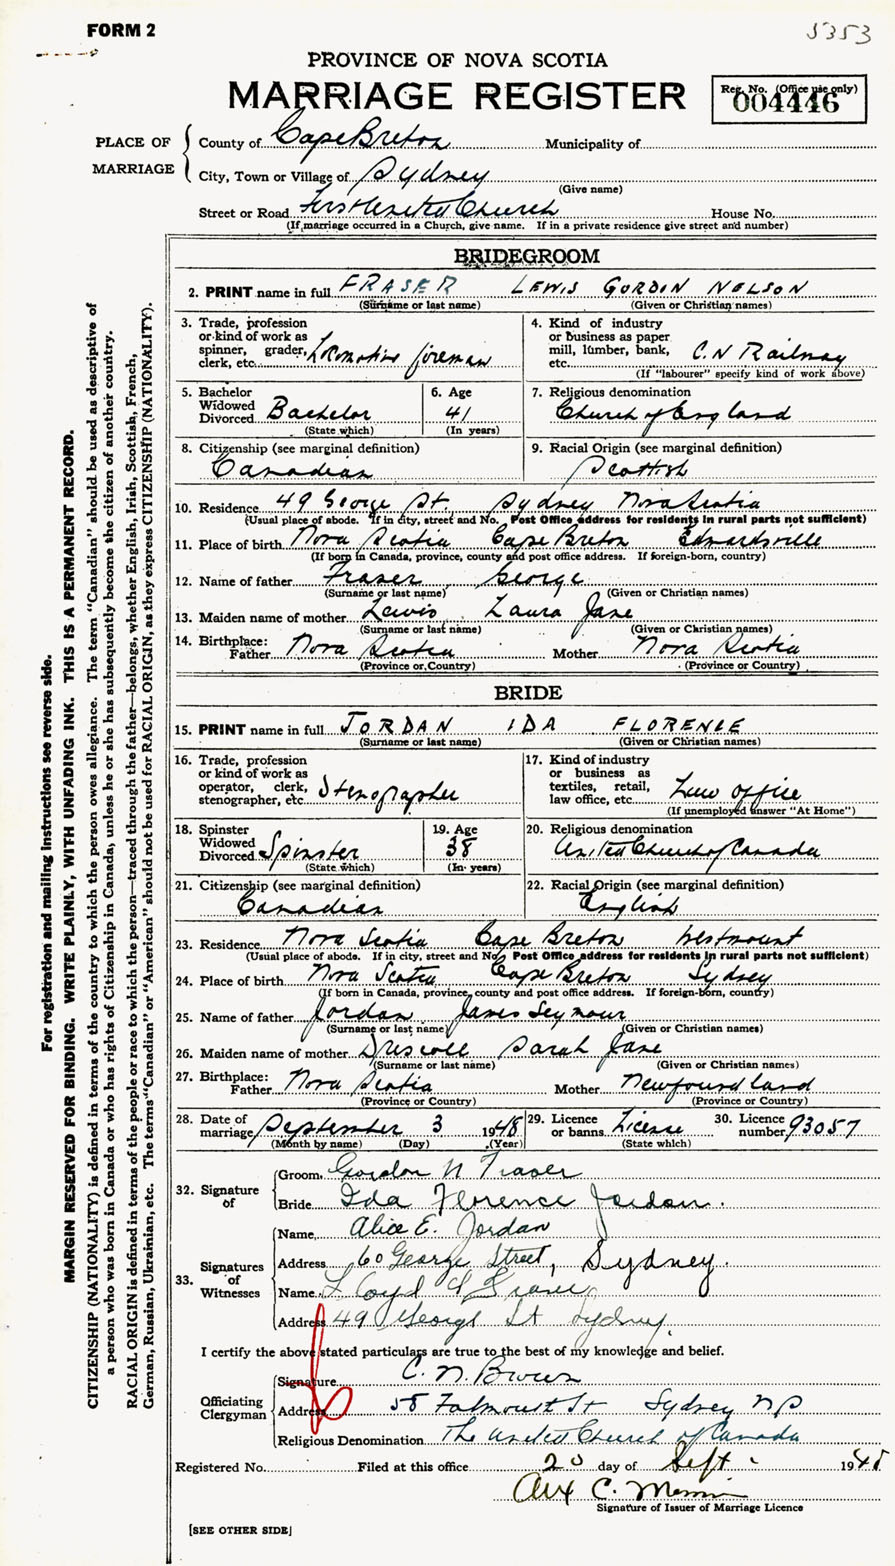 FORM 2
5353
PROVINCE OF NOVA SCOTIA
MARRIAGE REGISTER
Reg. No. (Office use only)
004446
PLACE OF MARRIAGE
County of Cape Breton Municipality of
City, Town or Village of Sydney
(Give name)
Street or Road First United Church House No.
(If marriage occurred in a Church, give name. If in a private residence give street and number)
BRIDEGROOM
2. PRINT name in full FRASER LEWIS GORDON NELSON
(Surname or last name) (Given or Christian names)
3. Trade, profession or kind of work as spinner, grader, clerk, etc. Locomotive fireman
4. Kind of industry or business as paper mill, lumber, bank, etc. C.N Railway
(If "labourer" specify kind of work above)
5. Bachelor Widowed Divorced Bachelor
(State which)
6. Age 41
(In years)
7. Religious denomination
Church of England
8. Citizenship (see marginal definition)
Canadian
9. Racial Origin (see marginal definition)
Scottish
10. Residence 49 George St. Sydney Nova Scotia
(Usual place of abode. If in city, street and No. Post Office address for residents in rural parts not sufficient)
11. Place of birth Nova Scotia Cape Breton Edwardsville
(If born in Canada, province, county and post office address. If foreign-born, country)
12. Name of father Fraser George
(Surname or last name) (Given or Christian names)
13. Maiden name of mother Lewis Laura Jane
(Surname or last name) (Given or Christian names)
14. Birthplace: Father Nova Scotia Mother Nova Scotia
(Province or Country) (Province or Country)
BRIDE
15. PRINT name in full JORDAN IDA FLORENCE
(Surname or last name) (Given or Christian names)
16. Trade, profession or kind of work as operator, clerk, stenographer, etc Stenographer
17. Kind of industry or business as textiles, retail, law office, etc. Law office
(If unemployed answer "At Home")
18. Spinster Widowed Divorced Spinster
(State which)
19. Age 38
(In years)
20. Religious denomination
United Church of Canada
21. Citizenship (see marginal definition)
Canadian
22. Racial Origin (see marginal definition)
English
23. Residence Nova Scotia Cape Breton Westmount
(Usual place of abode. If in city, street and No. Post Office address for residents in rural parts not sufficient)
24. Place of birth Nova Scotia Cape Breton Sydney
(If born in Canada, province, county and post office address. If foreign-born, country)
25. Name of father Jordan James Seymour
(Surname or last name) (Given or Christian names)
26. Maiden name of mother Driscoll Sarah Jane
(Surname or last name) (Given or Christian names)
27. Birthplace: Father Nova Scotia Mother Newfoundland
(Province or Country) (Province or Country)
28. Date of marriage September 3 1948
(Month by name) (Day) (Year)
29. Licence or banns License
(State which)
30. Licence number 93057
32. Signature of
Groom Gordon N Fraser
Bride Ida Florence Jordan.
33. Signatures of Witnesses
Name Alice E. Jordan
Address 60 George Street, Sydney.
Name Lloyd Fraser
Address 49 George St Sydney
I certify the above stated particulars are true to the best of my knowledge and belief.
Officiating Clergyman
Signature C. N. Brown
Address 58 Falmouth St Sydney NS
Religious Denomination The United Church of Canada
Registered No. Filed at this office 20 day of Sept. 1948
Alex C.
Signature of Issuer of Marriage Licence
[SEE OTHER SIDE]
For registration and mailing instructions see reverse side.
MARGIN RESERVED FOR BINDING. WRITE PLAINLY, WITH UNFADING INK. THIS IS A PERMANENT RECORD.
CITIZENSHIP (NATIONALITY) is defined in terms of the country to which the person owes allegiance. The term "Canadian" should be used as descriptive of
a person who was born in Canada or who has rights of Citizenship in Canada, unless he or she has subsequently become the citizen of another country.
RACIAL ORIGIN is defined in terms of the people or race to which the person—traced through the father—belongs, whether English, Irish, Scottish, French,
German, Russian, Ukrainian, etc. The terms "Canadian" or "American" should not be used for RACIAL ORIGIN, as they express CITIZENSHIP (NATIONALITY).